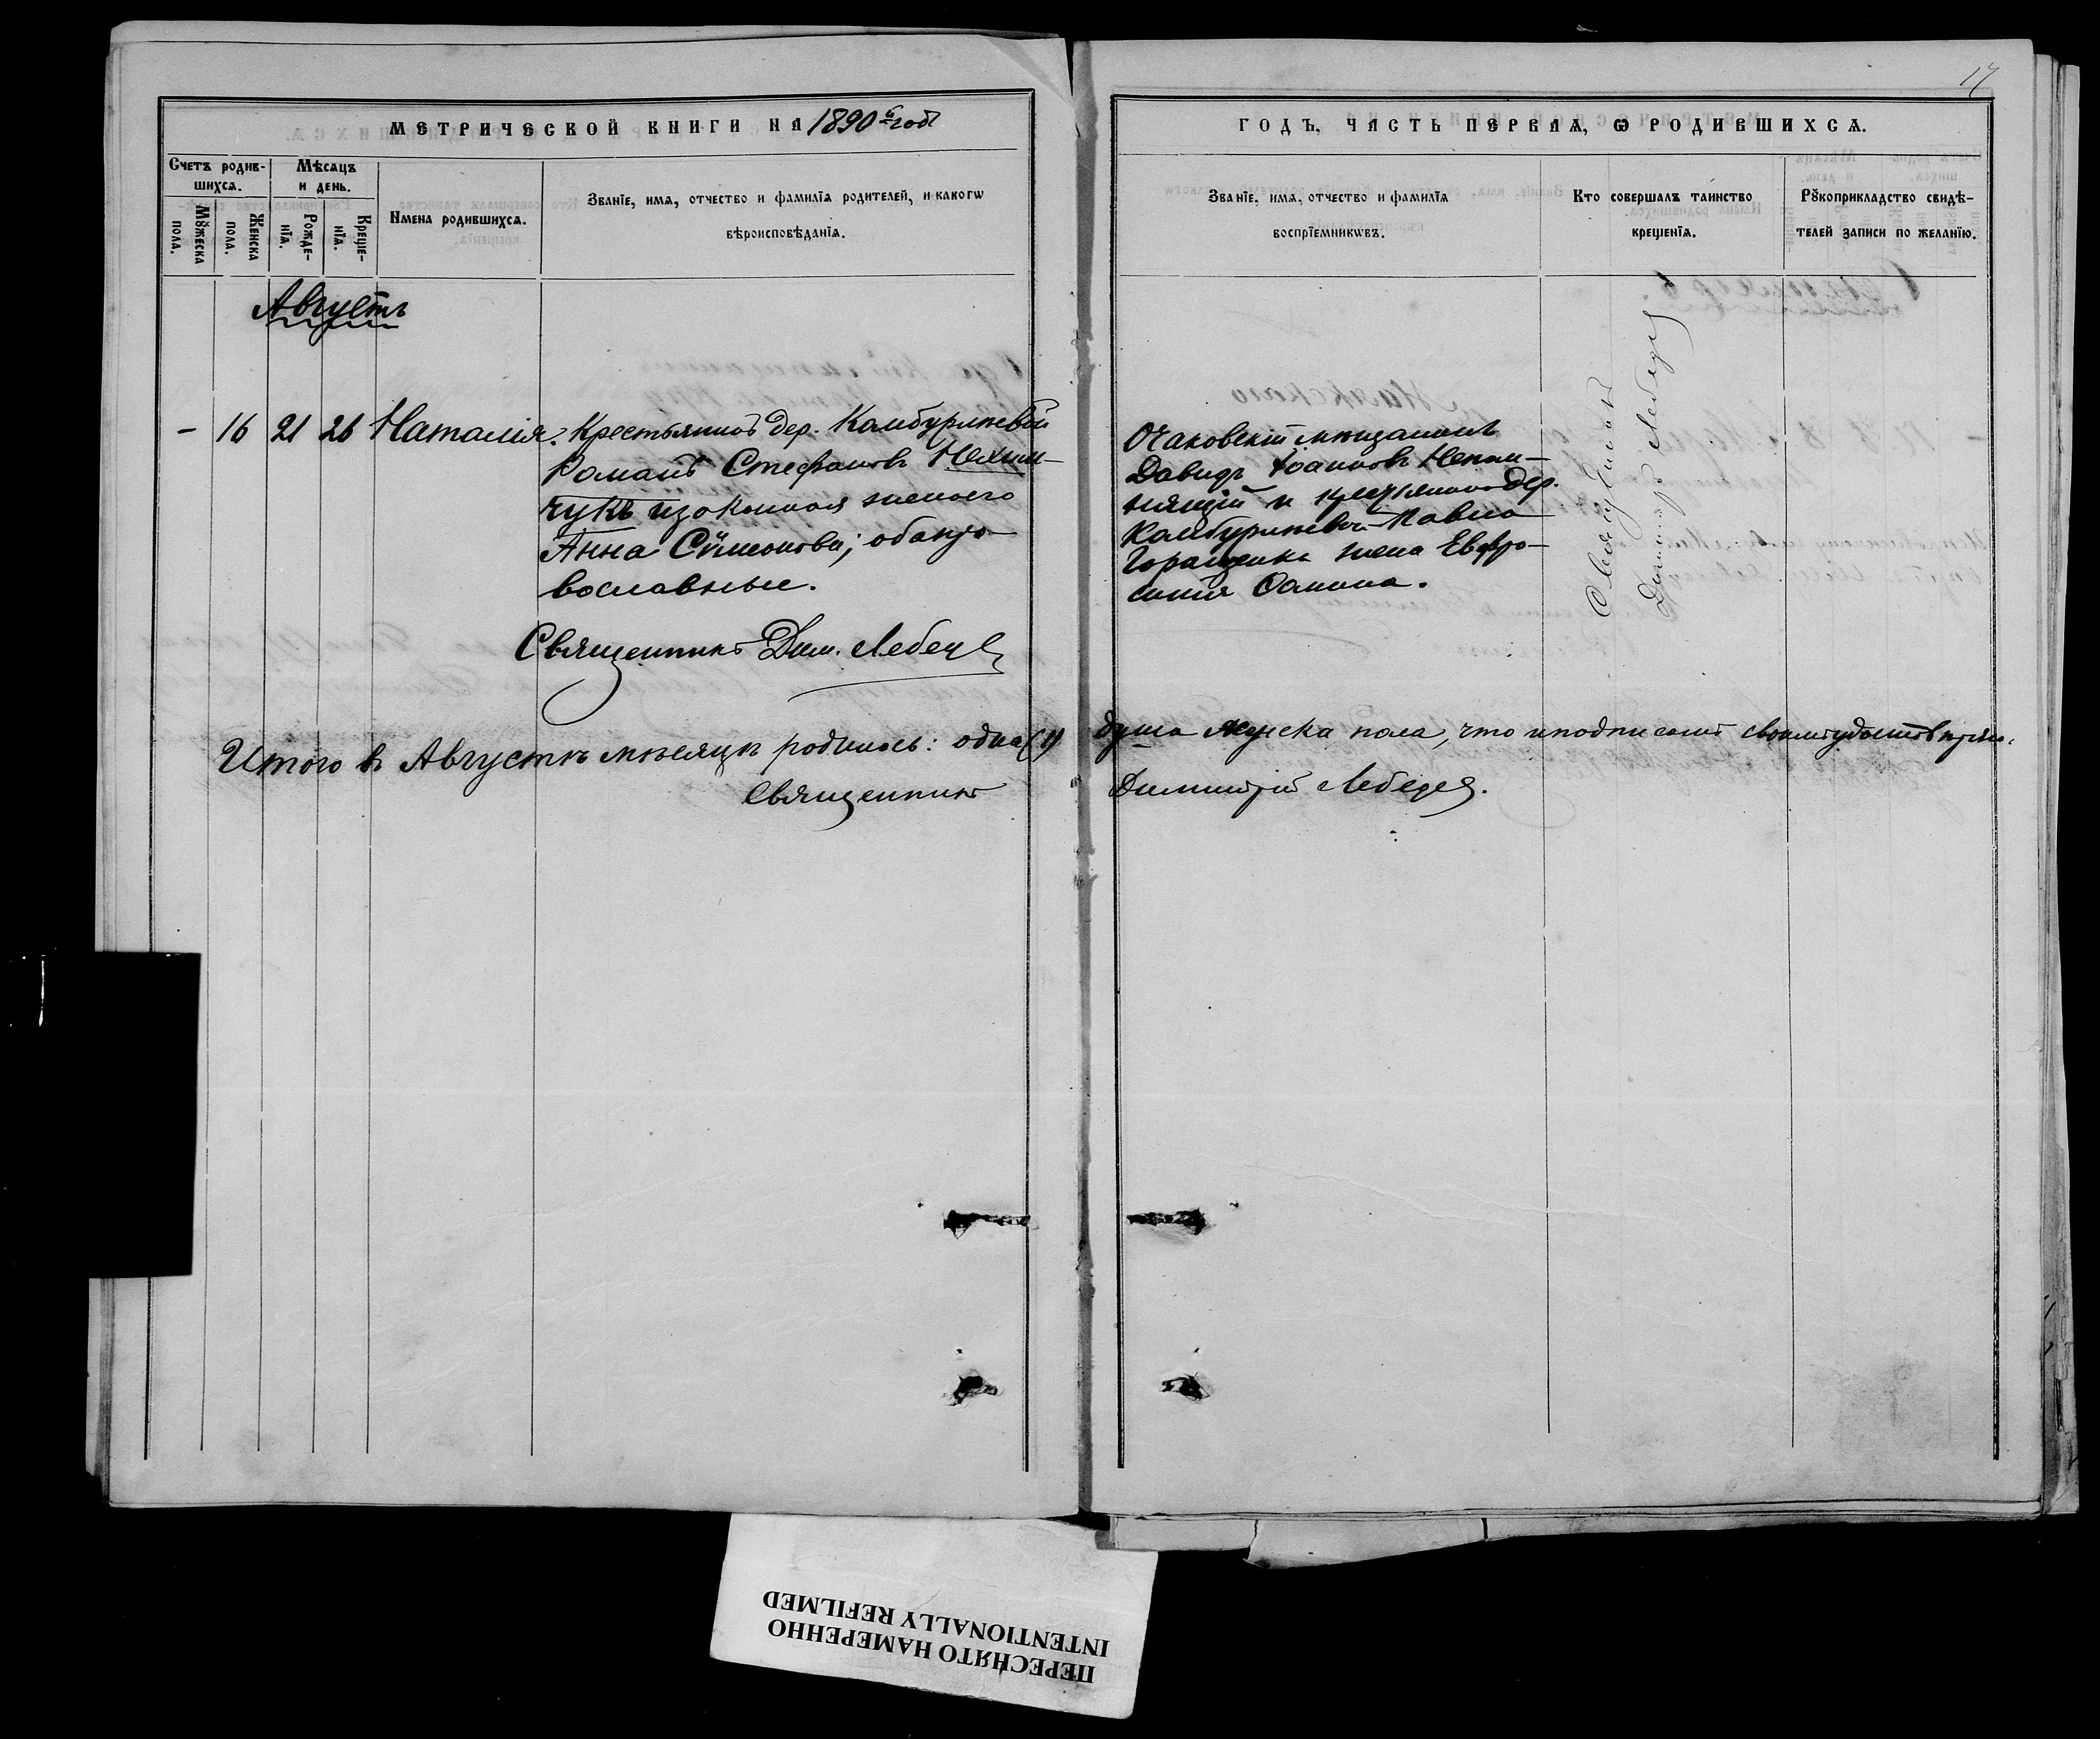 17
МЕТРИЧЕСКОЙ КНИГИ НА 1890й годъ
ГОДЪ, ЧАСТЬ ПЕРВАЯ, Ѡ РОДИВШИХСѦ.
Счетъ родив-
шихсѧ.
Мѣсѧцъ
и день.
Мꙋжеска
пола.
Женска
пола.
Рожде-
нїѧ.
Креще-
нїѧ.
Имена родившихсѧ.
Званїе, имѧ, отчество и фамилїѧ родителей, и какогѡ
вѣроисповѣданїѧ.
Званїе, имѧ, отчество и фамилїѧ
воспрїемникѡвъ.
Кто совершалъ таинство
крещенїѧ.
Рꙋкоприкладство свидѣ-
телей записи по желанїю.
Августъ
- 16 21 26 Наталія. Крестьянинъ дер. Камбурліевой
Романъ Стефановъ
чукъ и законная жена его
Анна Сѵмеонова; оба пра-
вославные.
Священникъ Дим. Лебедев
Очаковскій мѣщанинъ
Давидъ Іоанновъ
и крестьянина дер.
Камбурліевой Павла
жена Евфро-
синія
Священникъ
Димитрій Лебедев
Итого въ Августѣ мѣсяцѣ родилось: одна (1) душа женска пола, что и подписомъ своимъ
Священникъ Димитрій Лебедев.
ПЕРЕСНЯТО НАМЕРЕННО
INTENTIONALLY REFILMED